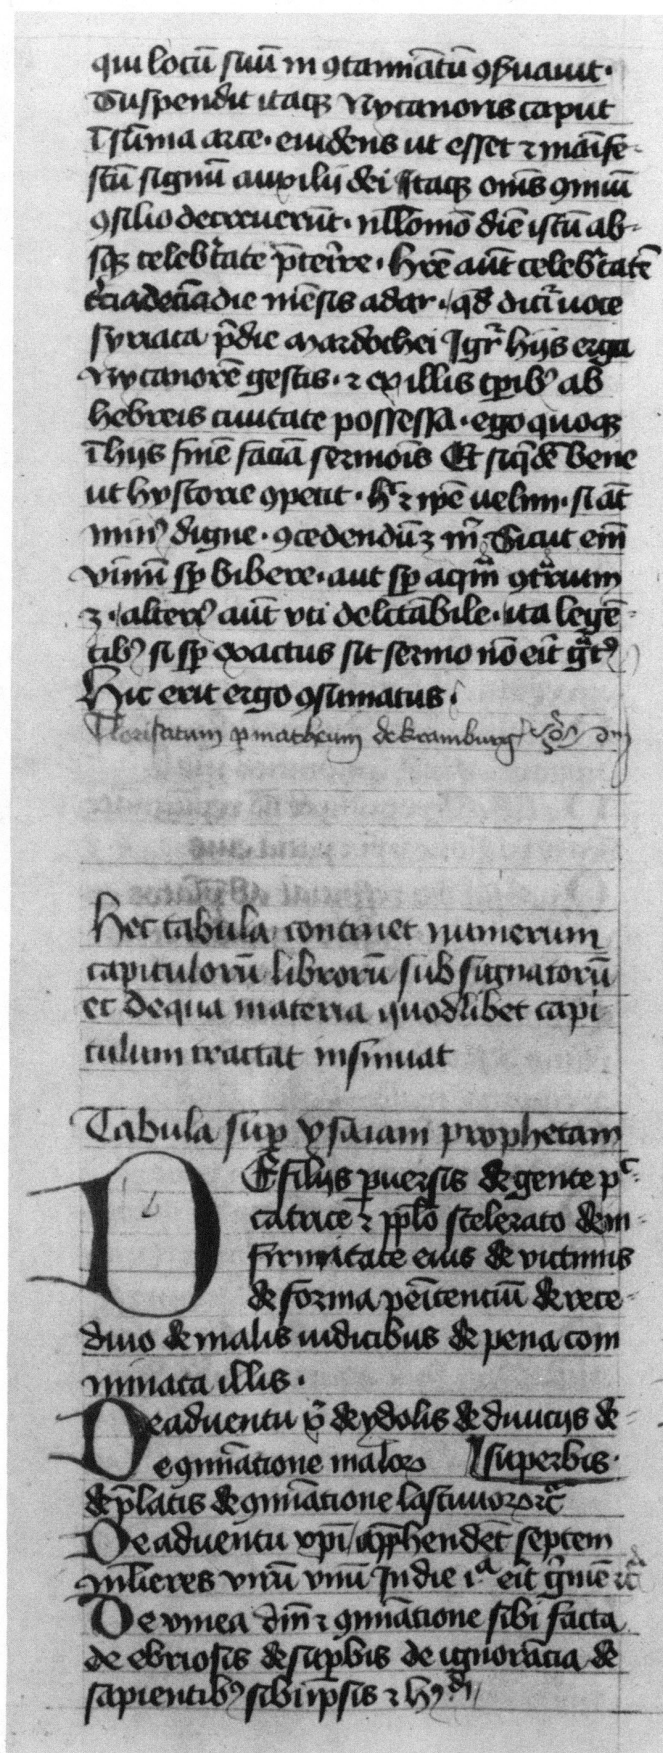 qui locū suū in ꝯtaminatū ꝯẜuauit·
Suspendit itaqꝫ Nycanoris caput
ī sūma arce· euidens ut esset ⁊ manife-
stū signū auxilij dei Itaqꝫ omīs ꝯmuni
ꝯsilio decreuerūt· nllomō diē istū ab-
sqꝫ celebritate p̄terire· Hr̄e aūt celebritatē
die mēsis adar· qd̄ dicit̉ uoce
syriaca p̄die mardochei Igr̄ hijs erga
Nycanorē gestis· ⁊ ex illis tp̄ibꝰ ab
hebreis ciuitate possessa· ego quoqꝫ
ī hijs finē faciā sermois Et siqd̄ē bene
ut hystorie ꝯpetit· h̄ ⁊ ip̄e uelim· si aūt
minꝰ digne· ꝯcedendū ꝫ m̄ Sicut em̄
vinū sp̄ bibere· aut sp̄ aquā ꝯtrariū
ꝫ· alternꝰ aūt vti delectabile· ita legē-
tibꝰ si sp̄ exactus sit sermo nō erit gratꝰ
Hic erit ergo ꝯsumatus·
Florisatum ꝑ matheum de kramburg
Hec tabula continet numerum
capitulorū librorū sub signatorū
et de qua materia quodlibet capi
tulum tractat insinuat
Tabula suꝑ ysaiam prophetam
DE filijs ꝑuersis de gente pc-
catrice ⁊ pplō scelerato de in-
firmitate eius de victimis
de forma penitenciū de rece-
diuo de malis iudicibus de pena com
minata illis·
De aduentu de ydolis de diuicijs de-
ꝯminatione malorꝝ superbis·
de p̄latis de ꝯminatione lasciuorꝝ ⁊c̄
De aduentu xpi app̄hendēt septem
mlieres virū vnū In die ia erit germē ⁊c̄
De vinea dn̄i ⁊ ꝯminatione sibi facta
de ebriosis de suꝑbis de ignorācia de
sapientibꝰ sibi ip̄sis ⁊